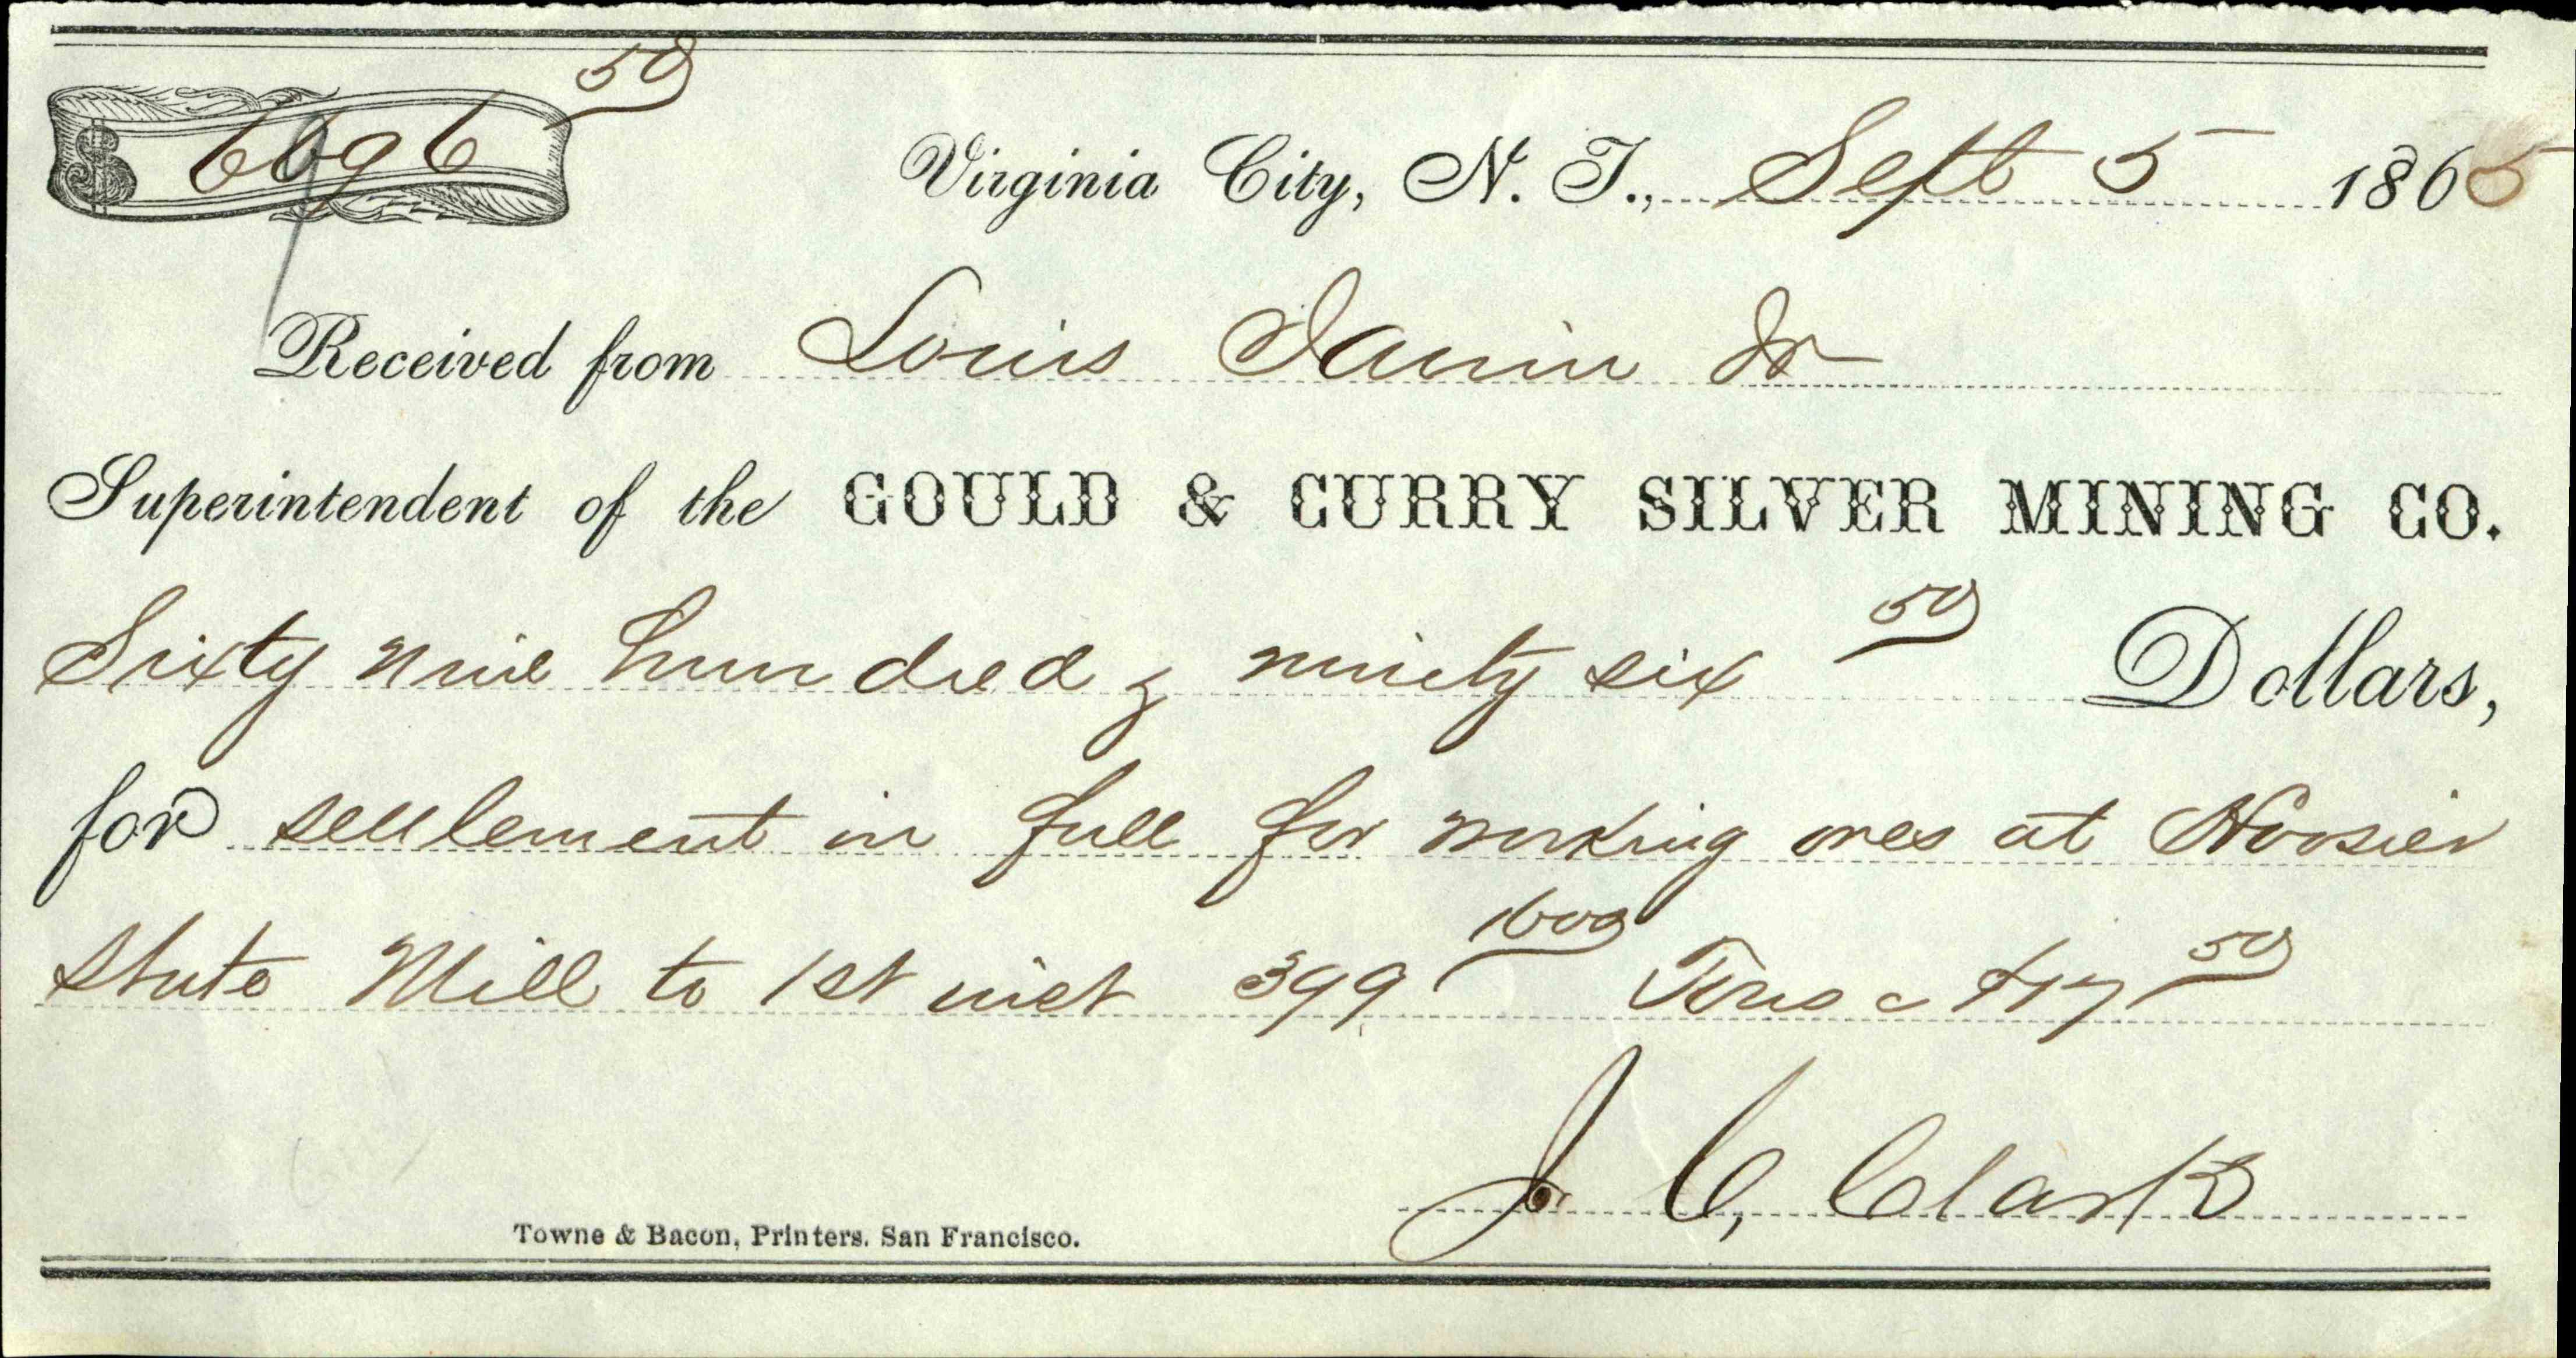 $ 6696 50
Virginia City, N. T., Sept 5 1865
Received from Louis Janin Jr
Superintendent of the GOULD & CURRY SILVER MINING CO.
Sixty nine hundred & ninety six 50 Dollars,
for settlement in full for working ores at Hoosier
State Mill to 1st inst 399 1600 Tons @ $17 50
J. C. Clark
Towne & Bacon, Printers. San Francisco.